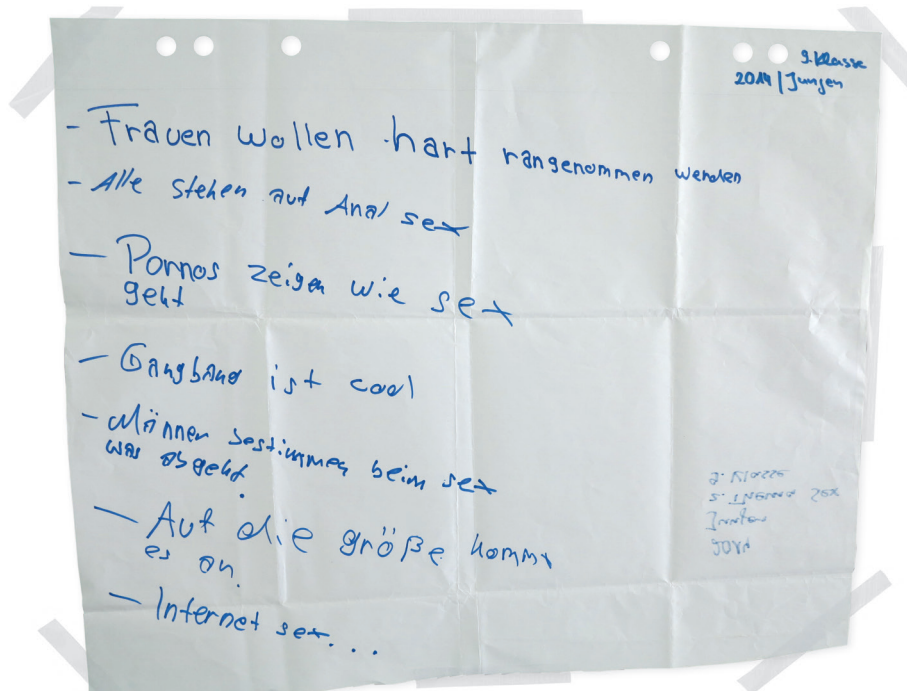 9. Klasse
2014 | Jungen
- Frauen wollen hart rangenommen werden
- Alle stehen auf Anal sex
- Pornos zeigen wie sex
geht
- Gangbang ist cool
- Männer bestimmen beim sex
was abgeht.
- Auf die größe kommt
es an.
- Internet sex...